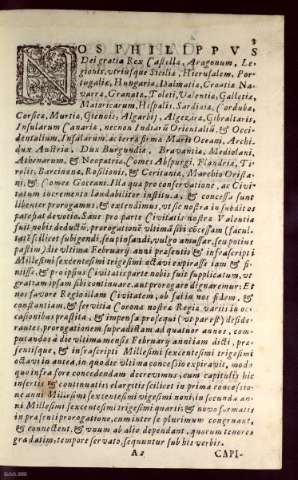 3
NOS PHILIPPVS
Dei gratia Rex Castellæ, Aragonum, Le-
gionis, vtriusque Siciliæ, Hierusalem, Por-
tugaliæ, Hungariæ, Dalmatiæ, Croatiæ Na-
uarræ, Granatæ, Toleti, Valentiæ, Galletiæ,
Maioricarum, Hispalis, Sardiniæ, Cordubæ,
Corsicæ, Murtiæ, Giennis, Algarbij, Algezira, Gibraltaris,
Insularum Canariæ, necnon Indiarũ Orientaliũ, & Occi-
dentalium, Insularũ, ac terræ firmæ Maris Oceani, Archi-
dux Austriæ, Dux Burgundiæ, Brauantiæ, Mediolani,
Athenarum, & Neopatriæ, Comes Abspurgi, Flandriæ, Ti-
rolis, Barcinonæ, Rosilionis, & Ceritaniæ, Marchio Orista-
ni, & Comes Goceani. Illa quæ pro conseruatione, ac Ciui-
tatum incrementa laudabiliter instituta, & concessa sunt
libenter prorogamus, & extendimus, vt sic nostra in subditos
pateſcat deuotio. Sane pro parte Ciuitatis nostræ Valentiæ
fuit nobis deductũ, prorogationẽ vltimã sibi cõcessam (facul-
tatẽ scilicet subgendi, seu
pastim) die vltima Februarij anni præsentis & infrascripti
Millesimi sexcentesimi trigesimi octaui expirasse iam & fi-
nisse, & pro ipsius Ciuitatis parte nobis fuit supplicatum, vt
gratiam ipsam sibi continuare, aut prorogare dignaremur: Et
nos fauore Regio illam Ciuitatem, ob fati in nos fidem, &
constantiam, & seruitia Coronæ nostræ Regiæ varijs in oc-
casionibus præstita, & impensa prosequi (vt par est) deside-
rantes, prorogationem supradictam ad quatuor annos, com-
putandos à die vltima mensis Februarij anni iam dicti, præ-
sentisque, & infrascripti Millesimi sexcentesimi trigesimi
octaui in antea, in quo die vltima concessio expirauit, modo
quo infra fore concedendam decreuimus, cum capitulis hic
insertis & continuatis elargitis scilicet in prima concessio-
ne anni Millesimi sexcentesimi vigesimi noni, in secunda an-
ni Millesimi sexcentesimi trigesimi quarti & nouo formatis
in præsenti prorogatione, cum inter se plurimum congruant,
& connectent, & vnum ab alio dependant, quorum tenores
gradatim, tempore seruato, sequuntur sub his verbis.
A2 CAPI-